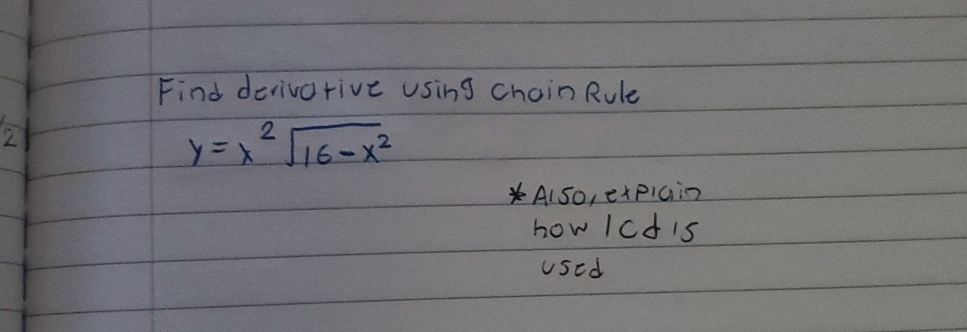 Find derivative using Chain Rule
y = x² √16-x²
* Also, explain
how lcd is
used